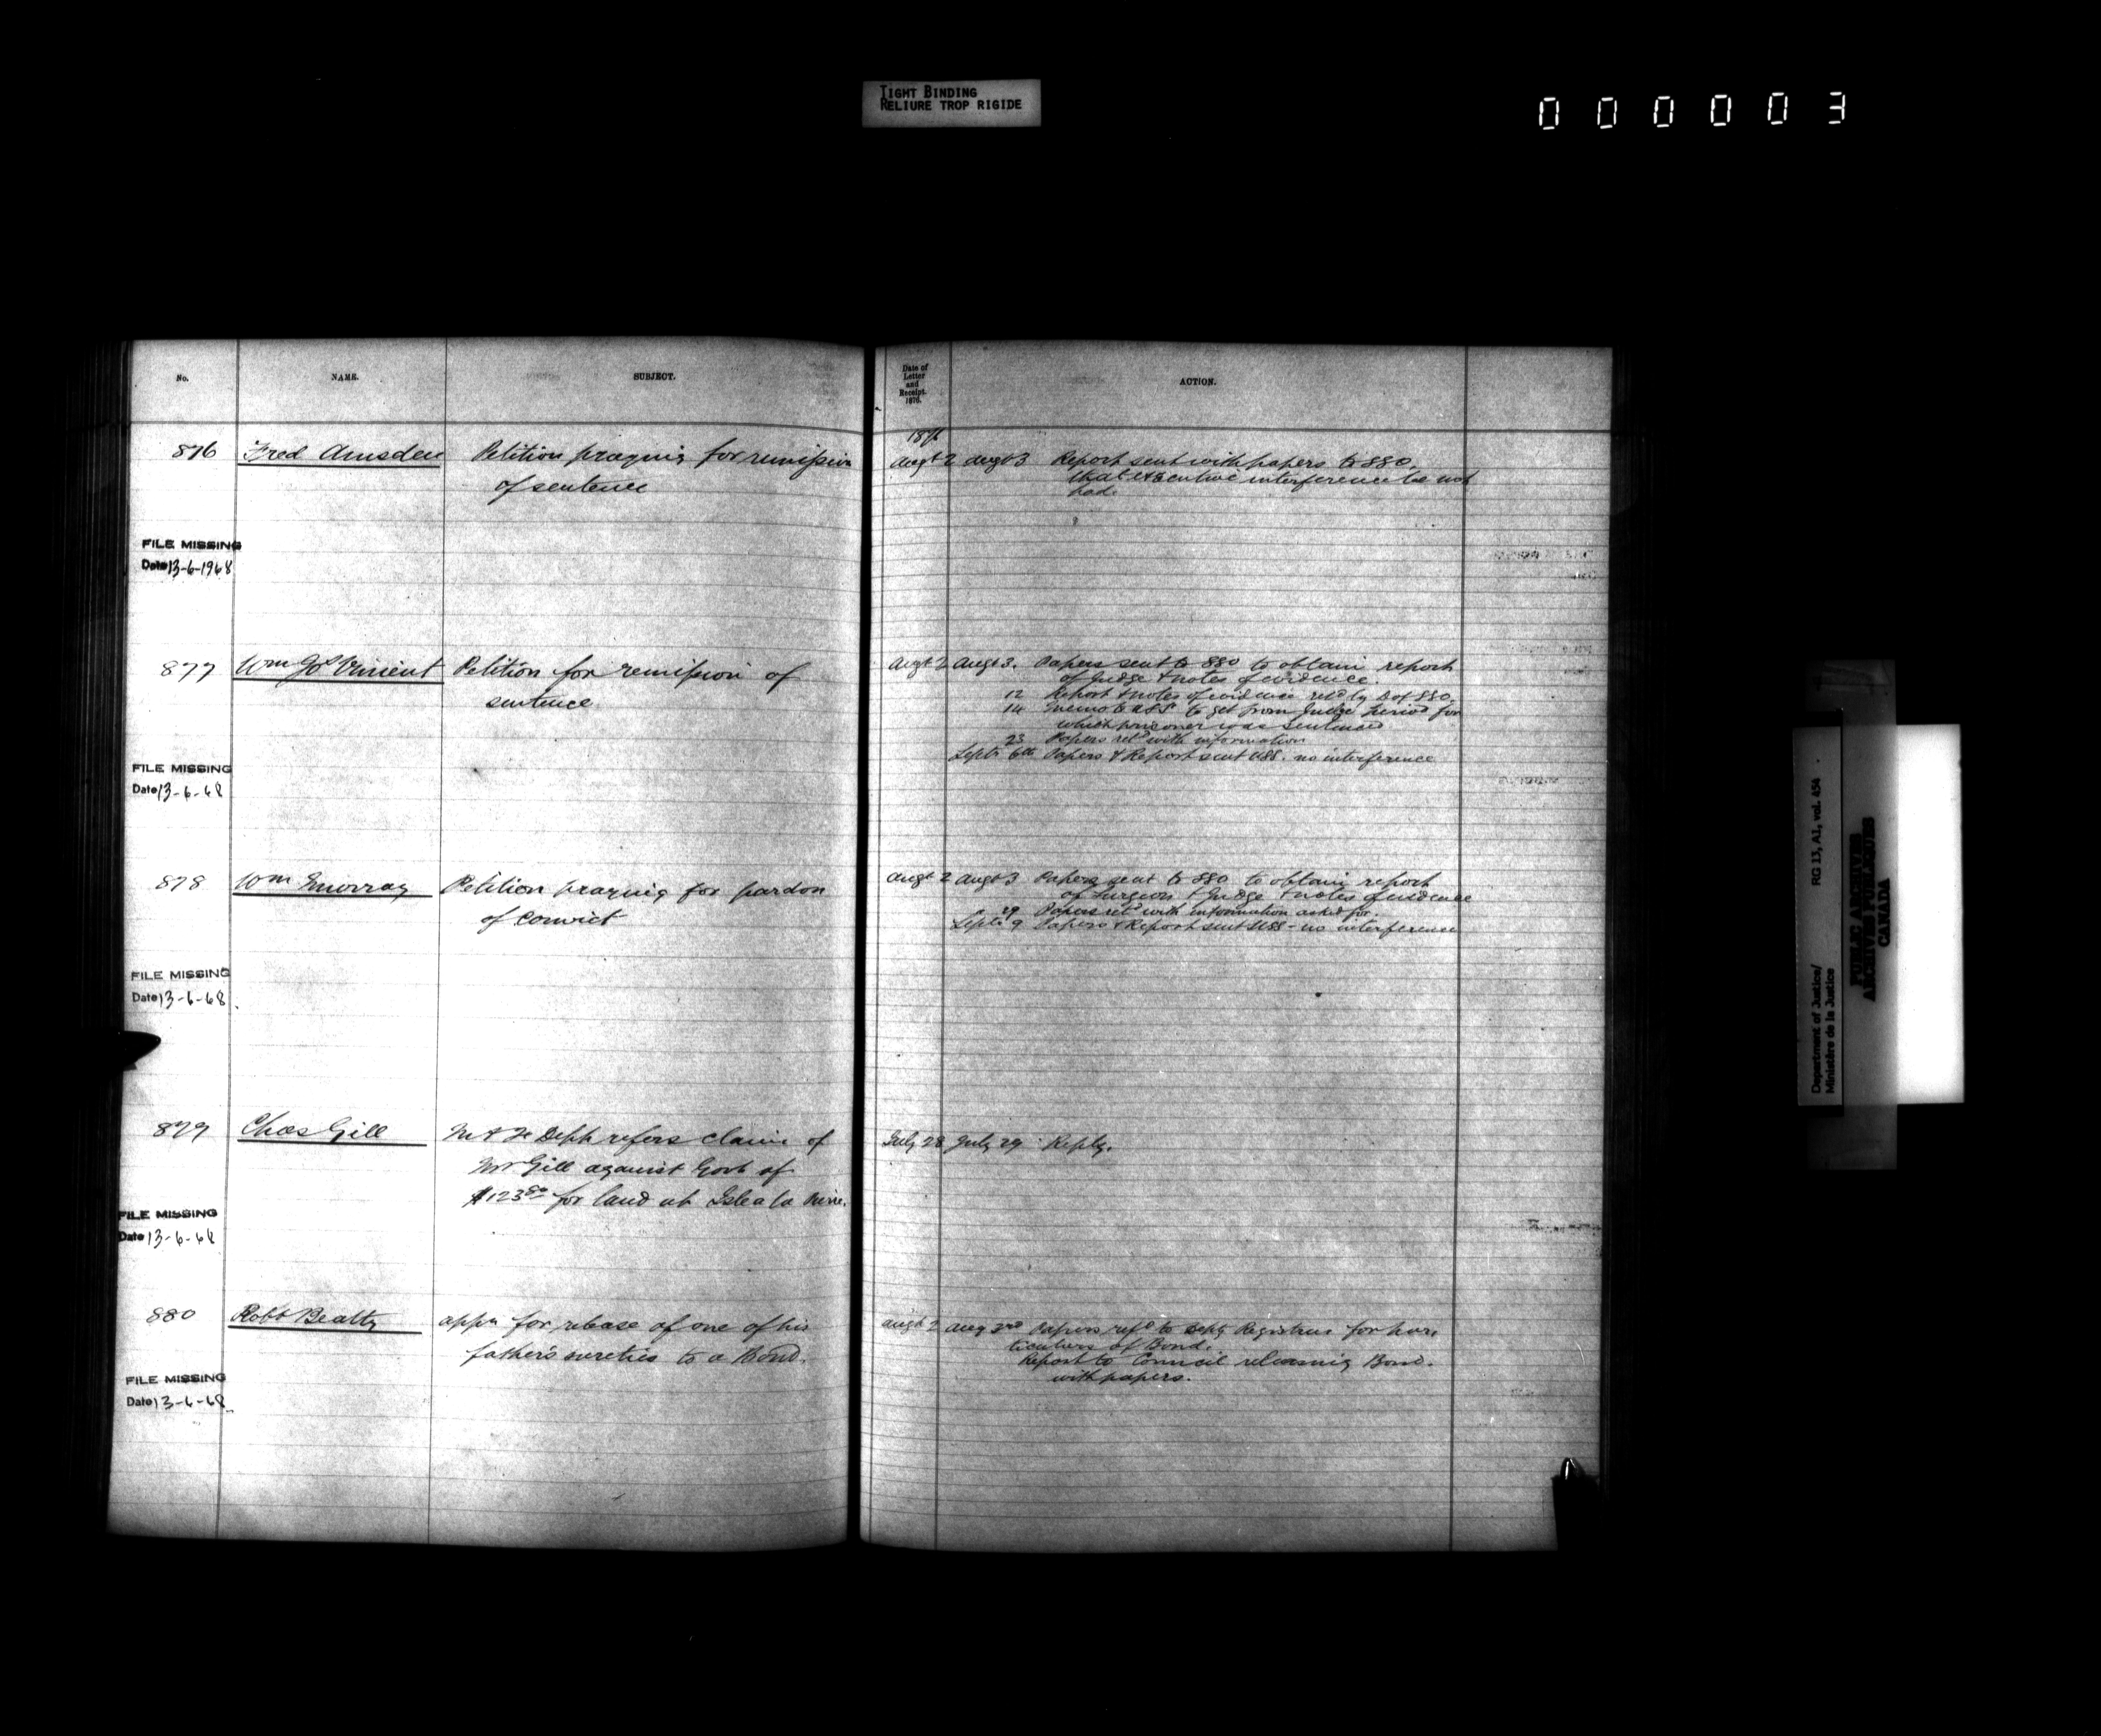 TIGHT BINDING
RELIURE TROP RIGIDE
000003
No.
NAME.
SUBJECT.
Date of
Letter
and
Receipt.
1876.
ACTION.
1876
876 Fred Amsden Petition praying for remission
of sentence
Augt 2 Augt 3 Report sent with papers to SSO,
that executive interference be not
had.
FILE MISSING
Date 13-6-1968
877 Wm Vincent Petition for remission of
sentence
Augt 2 Augt 3. Papers sent to SSO to obtain report
of Judge & notes of evidence.
12 Report & notes of evidence retd by of SSO
14 Memo to USS to get from Judge period for
which prisoner was sentenced
23 Papers retd with information
Septr 6th Papers & Report sent USS. no interference
FILE MISSING
Date 13-6-68
878 Wm Murray Petition praying for pardon
of convict
Augt 2 Augt 3 Papers sent to SSO to obtain report
of Surgeon & Judge & notes of evidence
29 Papers retd with information asked for.
Septr 9 Papers & Report sent USS - no interference
FILE MISSING
Date 13-6-68
879 Chas Gill M & F Dept refers claim of
Mr Gill against Govt of
$123 for land at Isle a la
July 28 July 29 Reply.
FILE MISSING
Date 13-6-68
880 Robt Beatty appn for release of one of his
father's sureties to a Bond.
Augt 2 Aug 3rd Papers refd to Depty Registrar for par-
ticulars of Bond.
Report to Council releasing Bond.
with papers.
FILE MISSING
Date 13-6-68
Department of Justice/
Ministère de la Justice
RG 13, A1, vol. 454
PUBLIC ARCHIVES
ARCHIVES PUBLIQUES
CANADA